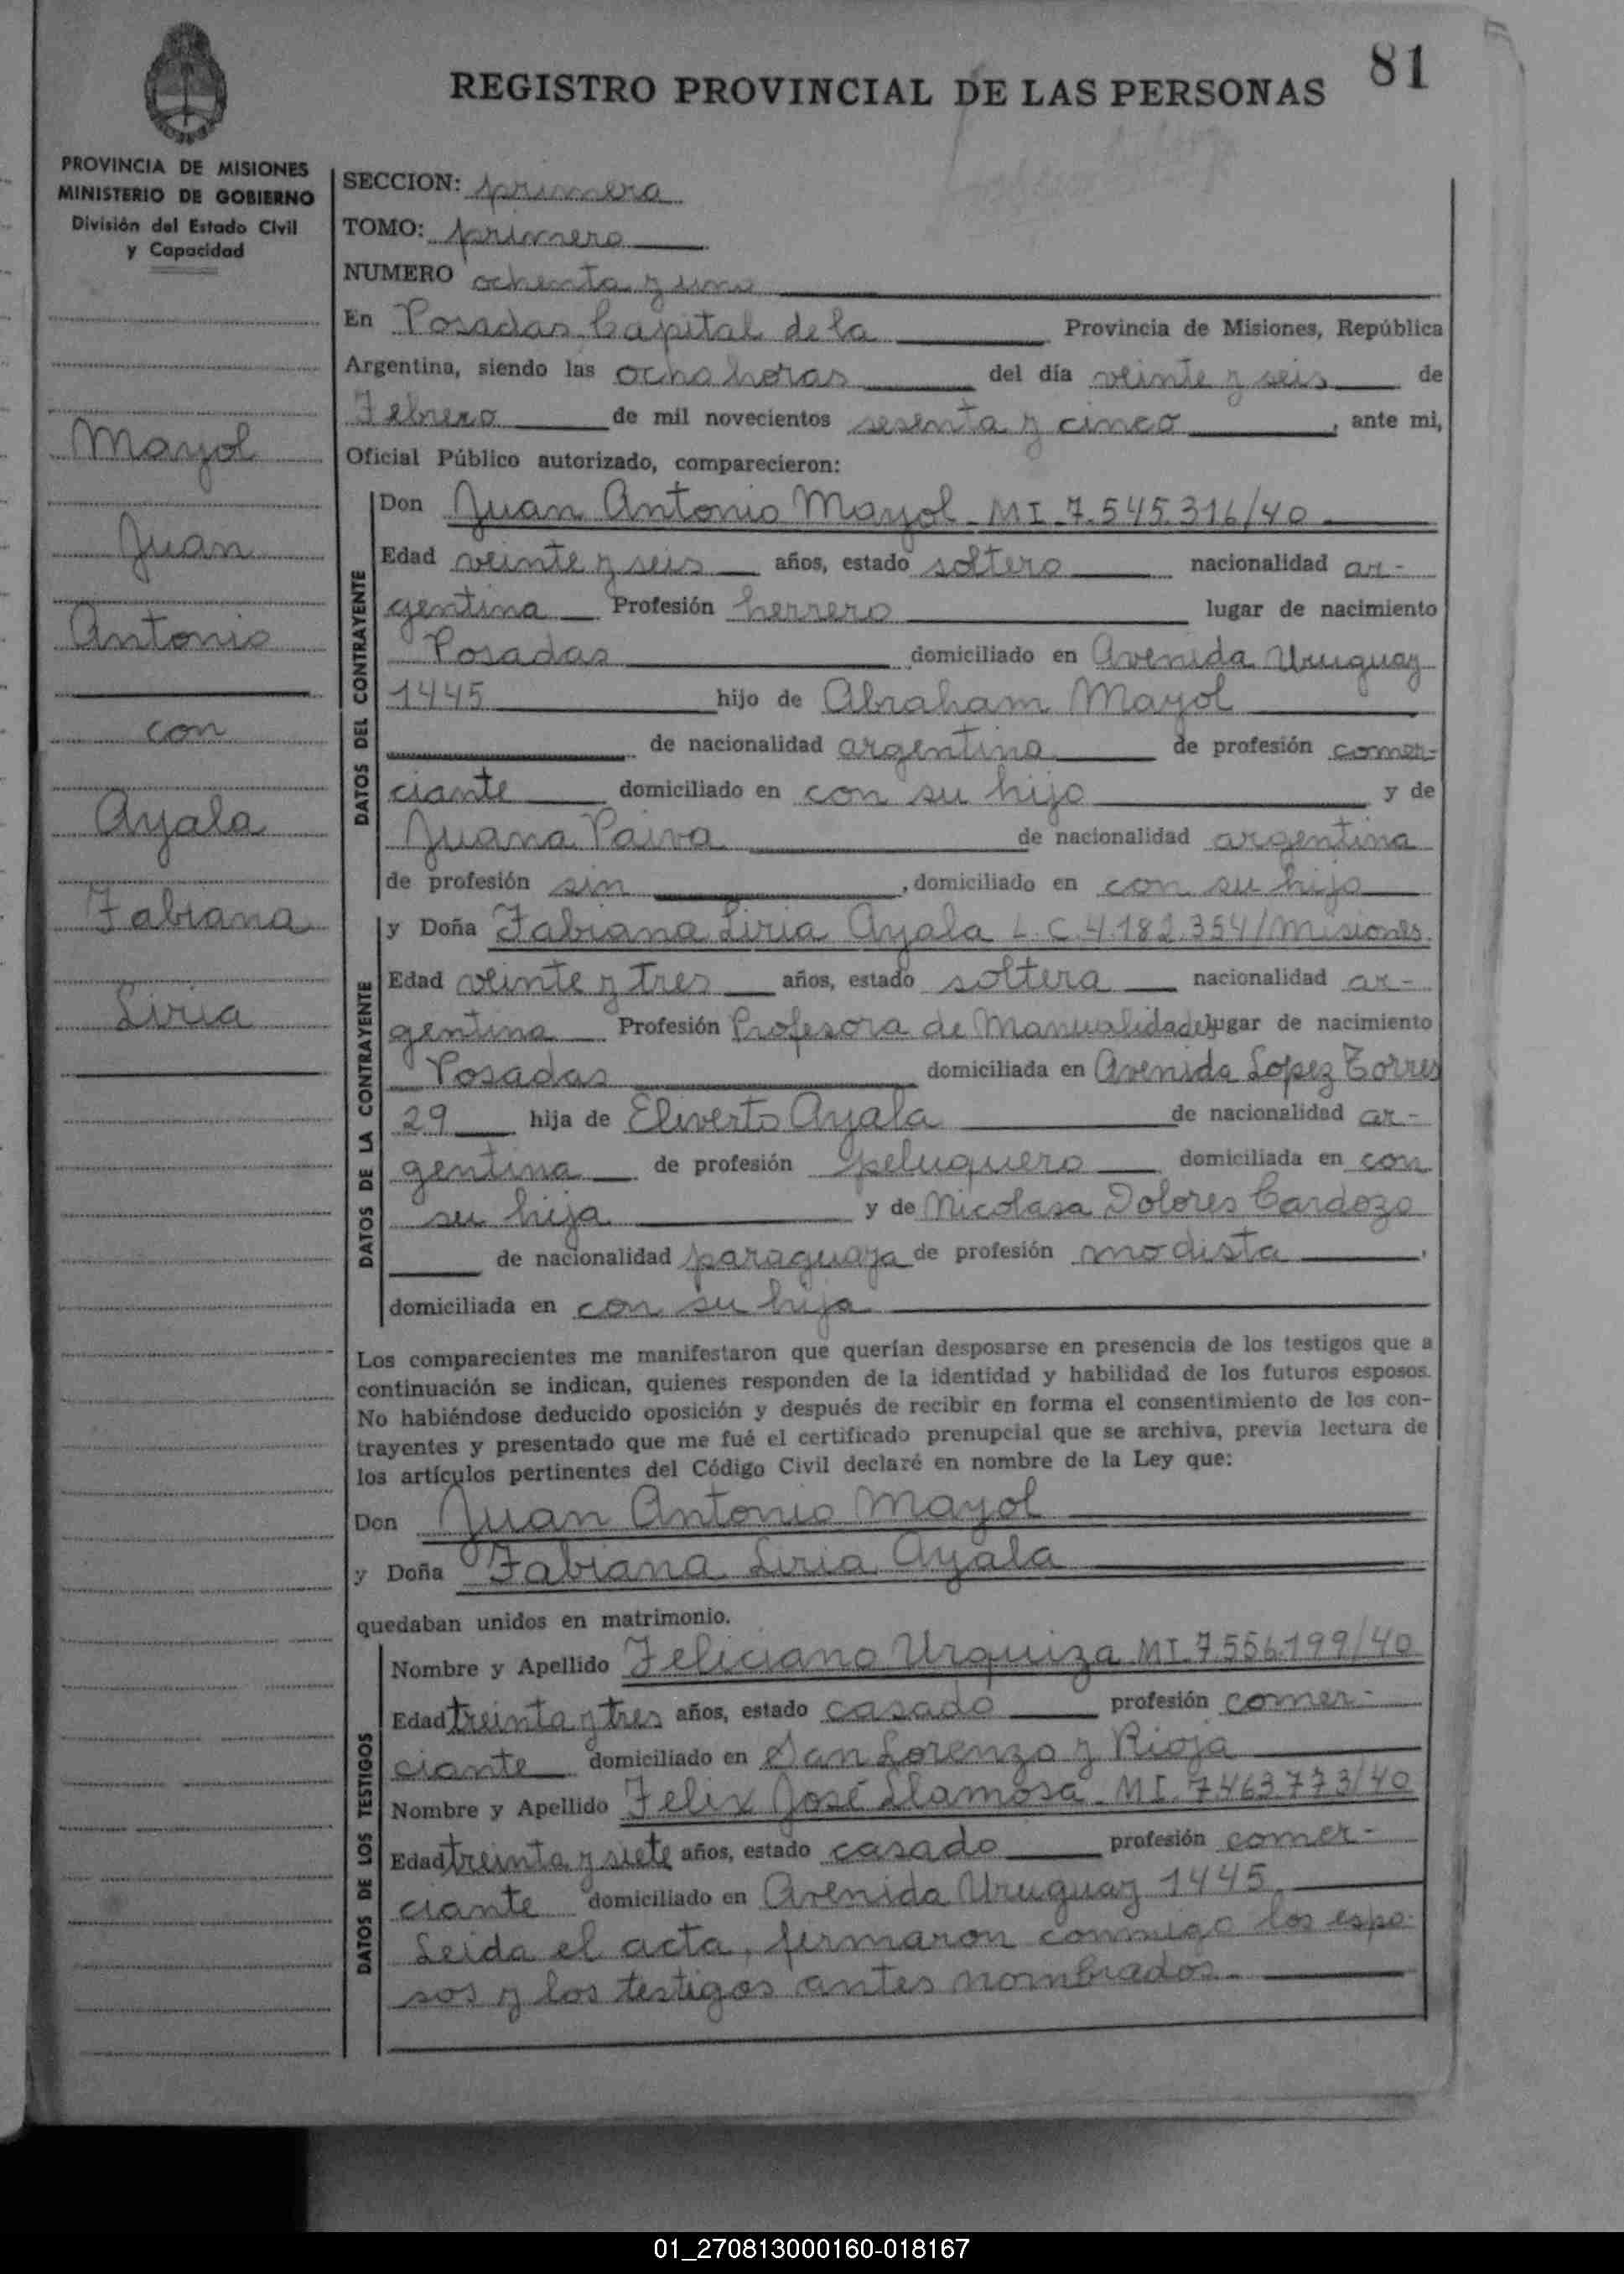 81
REGISTRO PROVINCIAL DE LAS PERSONAS
PROVINCIA DE MISIONES
MINISTERIO DE GOBIERNO
División del Estado Civil
y Capacidad
Mayol
Juan
Antonio
con
Ayala
Fabiana
Liria
SECCION: primera
TOMO: primero
NUMERO ochenta y uno
En Posadas Capital de la Provincia de Misiones, República
Argentina, siendo las ocho horas del día veinte y seis de
Febrero de mil novecientos sesenta y cinco, ante mi,
Oficial Público autorizado, comparecieron:
DATOS DEL CONTRAYENTE
Don Juan Antonio Mayol MI 7.545.316/40
Edad veinte y seis años, estado soltero nacionalidad ar-
gentina Profesión herrero lugar de nacimiento
Posadas domiciliado en Avenida Uruguay
1445 hijo de Abraham Mayol
de nacionalidad argentina de profesión comer-
ciante domiciliado en con su hijo y de
Juana Paiva de nacionalidad argentina
de profesión sin, domiciliado en con su hijo
DATOS DE LA CONTRAYENTE
y Doña Fabiana Liria Ayala L.C. 4.182.354/Misiones
Edad veinte y tres años, estado soltera nacionalidad ar-
gentina Profesión Profesora de Manualidades lugar de nacimiento
Posadas domiciliada en Avenida Lopez Torres
29 hija de Eliverto Ayala de nacionalidad ar-
gentina de profesión peluquero domiciliada en con
su hija y de Nicolasa Dolores Cardozo
de nacionalidad paraguaya de profesión modista,
domiciliada en con su hija
Los comparecientes me manifestaron que querían desposarse en presencia de los testigos que a
continuación se indican, quienes responden de la identidad y habilidad de los futuros esposos.
No habiéndose deducido oposición y después de recibir en forma el consentimiento de los con-
trayentes y presentado que me fué el certificado prenupcial que se archiva, previa lectura de
los artículos pertinentes del Código Civil declaré en nombre de la Ley que:
Don Juan Antonio Mayol
y Doña Fabiana Liria Ayala
quedaban unidos en matrimonio.
DATOS DE LOS TESTIGOS
Nombre y Apellido Feliciano Urquiza MI. 7.556.199/40
Edad treinta y tres años, estado casado profesión comer-
ciante domiciliado en San Lorenzo y Rioja
Nombre y Apellido Felix José Llamosa MI. 7.463.773/40
Edad treinta y siete años, estado casado profesión comer-
ciante domiciliado en Avenida Uruguay 1445
Leida el acta, firmaron conmigo los espo-
sos y los testigos antes nombrados.
01_270813000160-018167